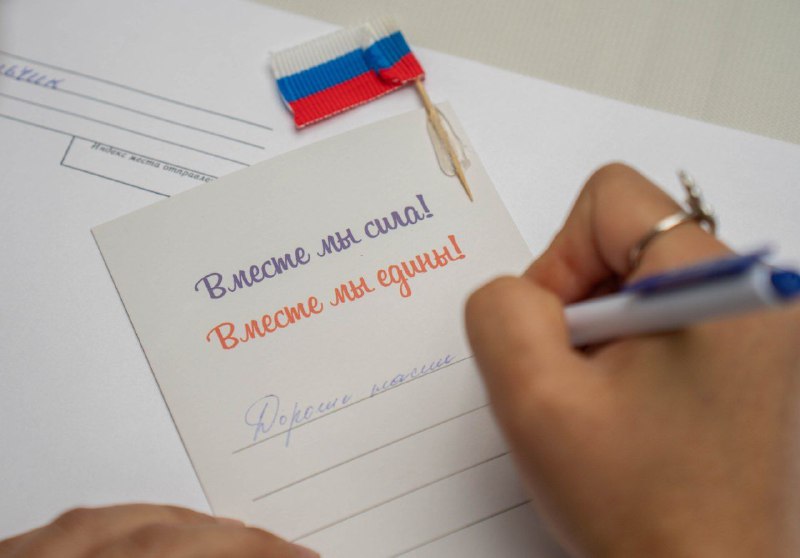 Индекс места отправле
Вместе мы сила!
Вместе мы едины!
Дорогие